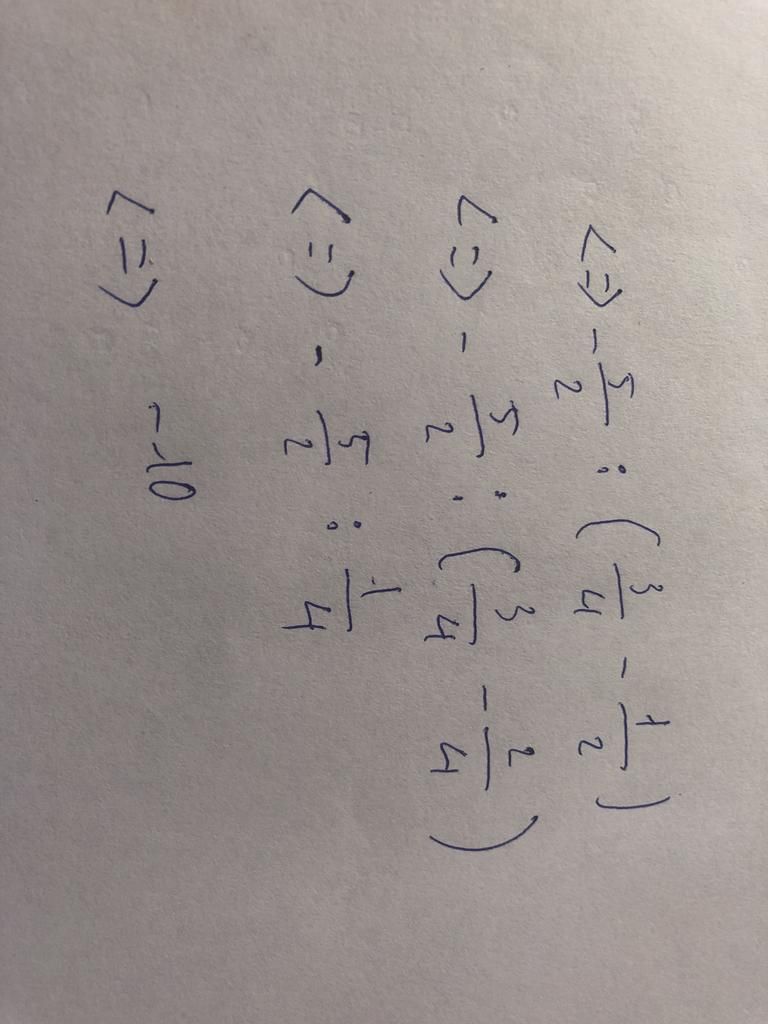 <=> - 5/2 : (3/4 - 1/2)
<=> - 5/2 : (3/4 - 2/4)
<=> - 5/2 : 1/4
<=> -10